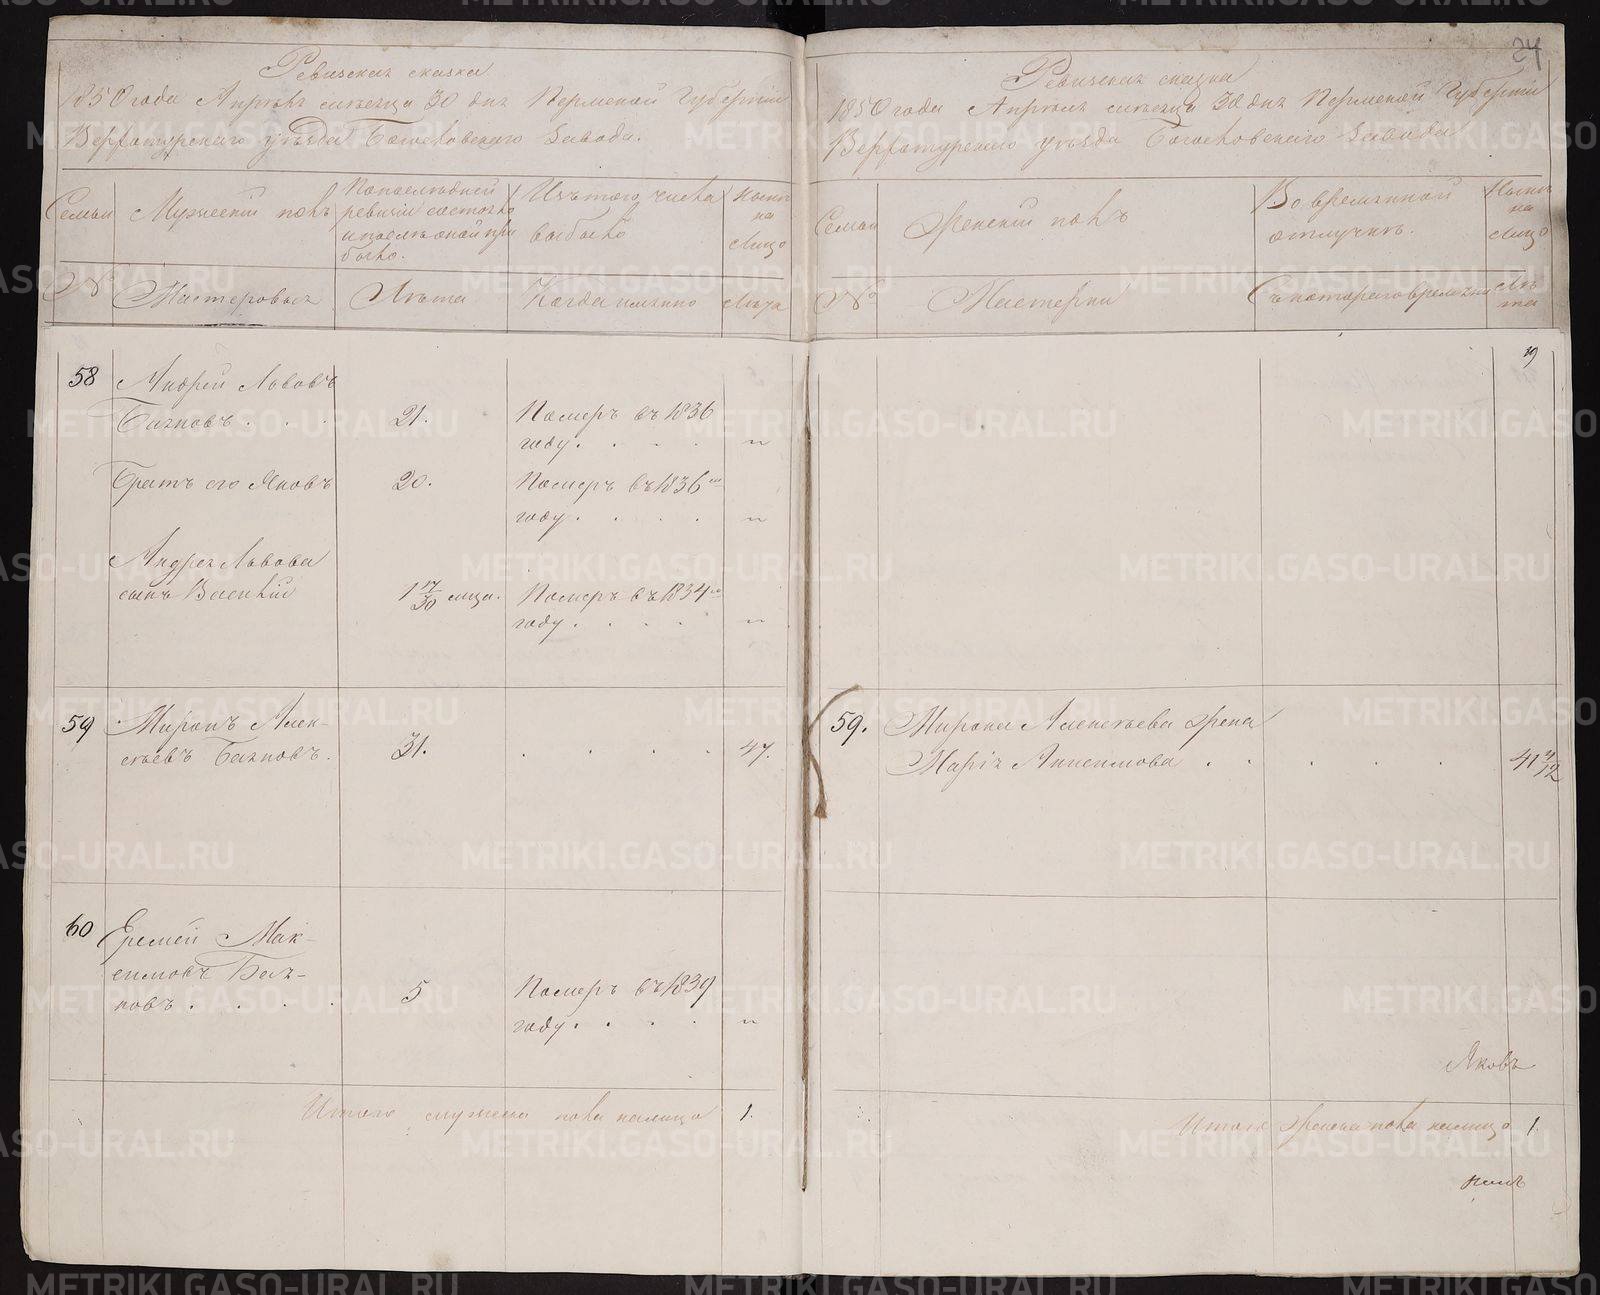 Ревизская сказка
1850 года Апрѣля мѣсяца 30 дня Пермской Губерніи
Верхотурскаго уѣзда Богословскаго Завода.
Семьи
Мужескій полъ
По последней
ревизіи состояло
и после оной при
было.
Изъ того числа
выбыло
Ныне
на
лицо
№
Мастеровыя
Лѣта
Когда именно
Лѣта
58
Андрей Львовъ
Баяновъ . . .
21.
Померъ въ 1836
году. . . . "
Братъ его Яковъ
20.
Померъ въ 1836
году. . . . "
Андрея Львова
сынъ Василій
1 17/30 мца.
Померъ въ 1834
году. . . . "
59
Миронъ Алек-
сѣевъ Баяновъ.
31. . . . . 47.
60
Еремей Мак-
симовъ Бая-
новъ . . . .
5
Померъ въ 1839
году. . . . "
Итого мужеска пола налицо 1.
24
Ревизская сказка
1850 года Апрѣля мѣсяца 30 дня Пермской Губерніи
Верхотурскаго уѣзда Богословскаго Завода
Семьи
Женскій полъ
Во временной
отлучкѣ.
Ныне
на
лицо
№
Мастерки
Съ котораго времени
Лѣ
та
59.
Мирона Алексѣева жена
Марія Анисимова . . . . .
Яковъ
Итого Женска пола налицо 1.
METRIKI.GASO-URAL.RU